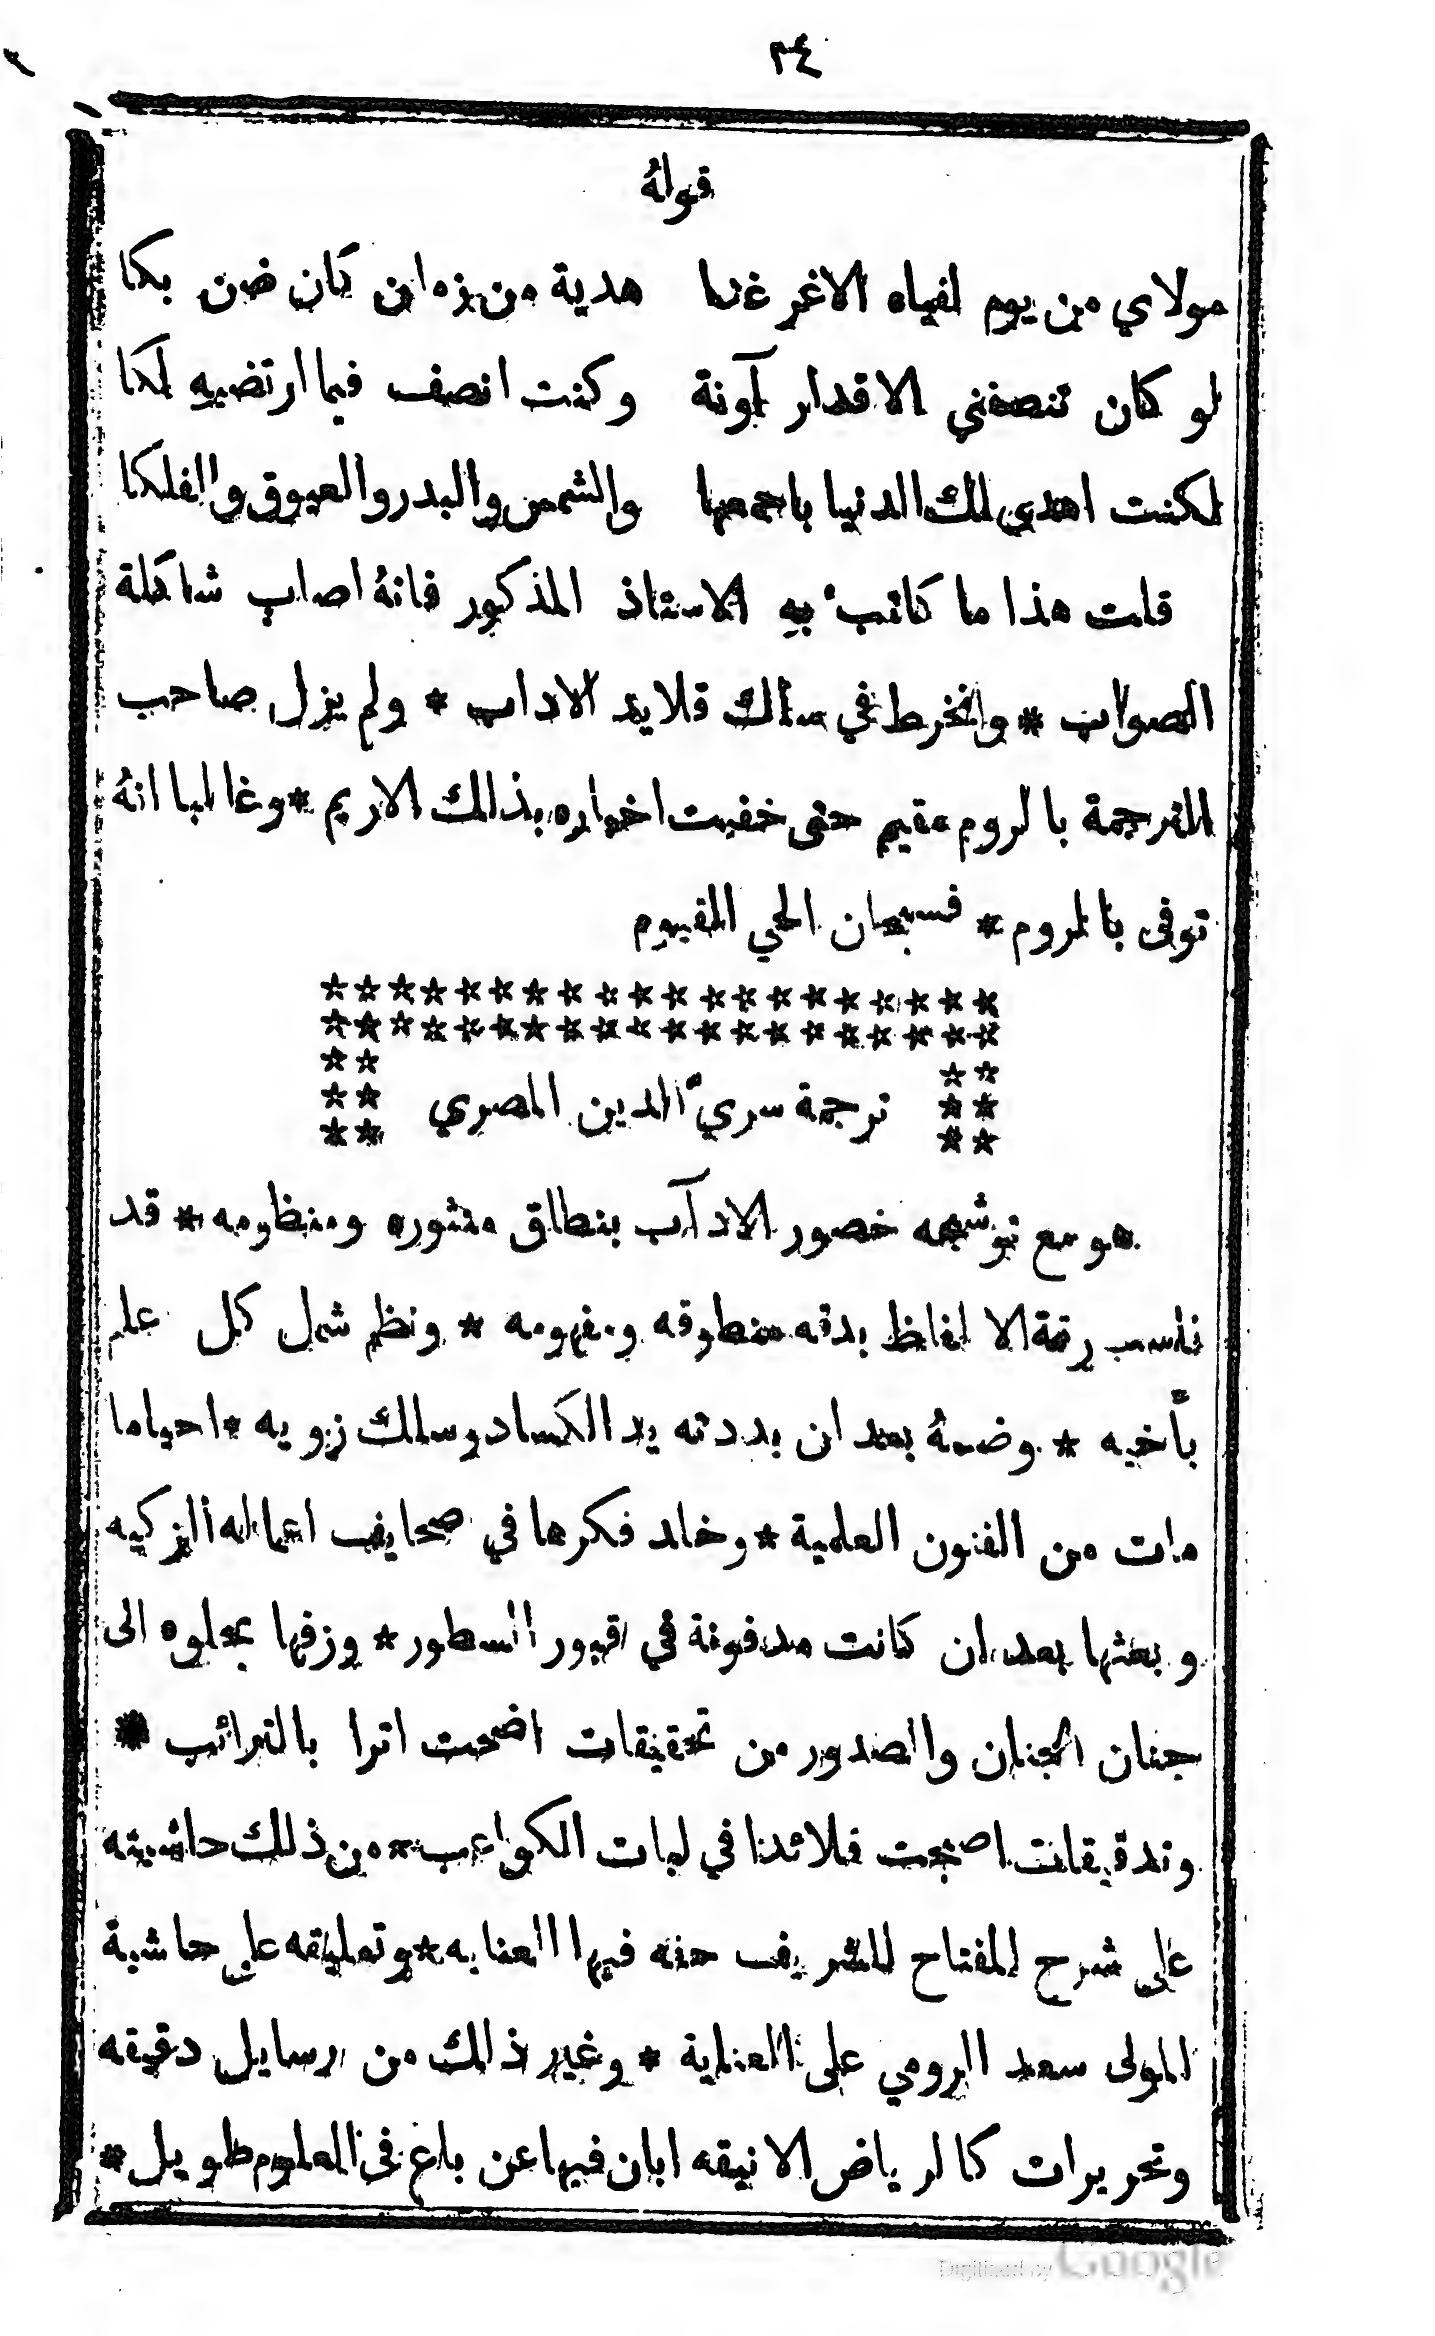 ٣٤
قولهُ
مولاي من يوم لقياه الاغر غدا هدية من زمان كان ضن بكا
لو كان تنصفني الاقدار آونة وكنت انصف فيما ارتضيه لكا
لكنت اهدي لك الدنيا باجمعها والشمس والبدر والعيوق والفلكا
قلت هذا ما كاتب به الاستاذ المذكور فانهُ اصاب شاكلة
الصواب * وانخرط في سلك قلايد الاداب * ولم يزل صاحب
الترجمة بالروم مقيم حتى خفيت اخباره بذلك الاريم * وغالبا انهُ
توفى بالروم * فسبحان الحي القيوم
ترجمة سريّ الدين المصري
هو مع توشيحه خصور الاداب بنطاق منثوره ومنظومه * قد
ناسب رقة الالفاظ بدقه منطوقه ومفهومه * ونظم شمل كل علم
بأخيه * وضمهُ بعد ان بددته يد الكساد وسلك زويه * احيا ما
مات من الفنون العلمية * وخلد فكرها في صحايف اعماله الزكيه
وبعثها بعد ان كانت مدفونة في قبور السطور * وزفها بجلوه الى
جنان الجنان والصدور من تحقيقات اضحت اترا بالترائب *
وتدقيقات اصبحت فلائدنا في لبات الكواعب * من ذلك حاشيته
على شرح المفتاح للشريف حفه فيها العنايه * وتعليقه على حاشية
المولى سعد الرومي على العناية * وغير ذلك من رسايل دقيقه
وتحريرات كالرياض الانيقه ابان فيها عن باع في العلوم طويل *
Digitized by Google